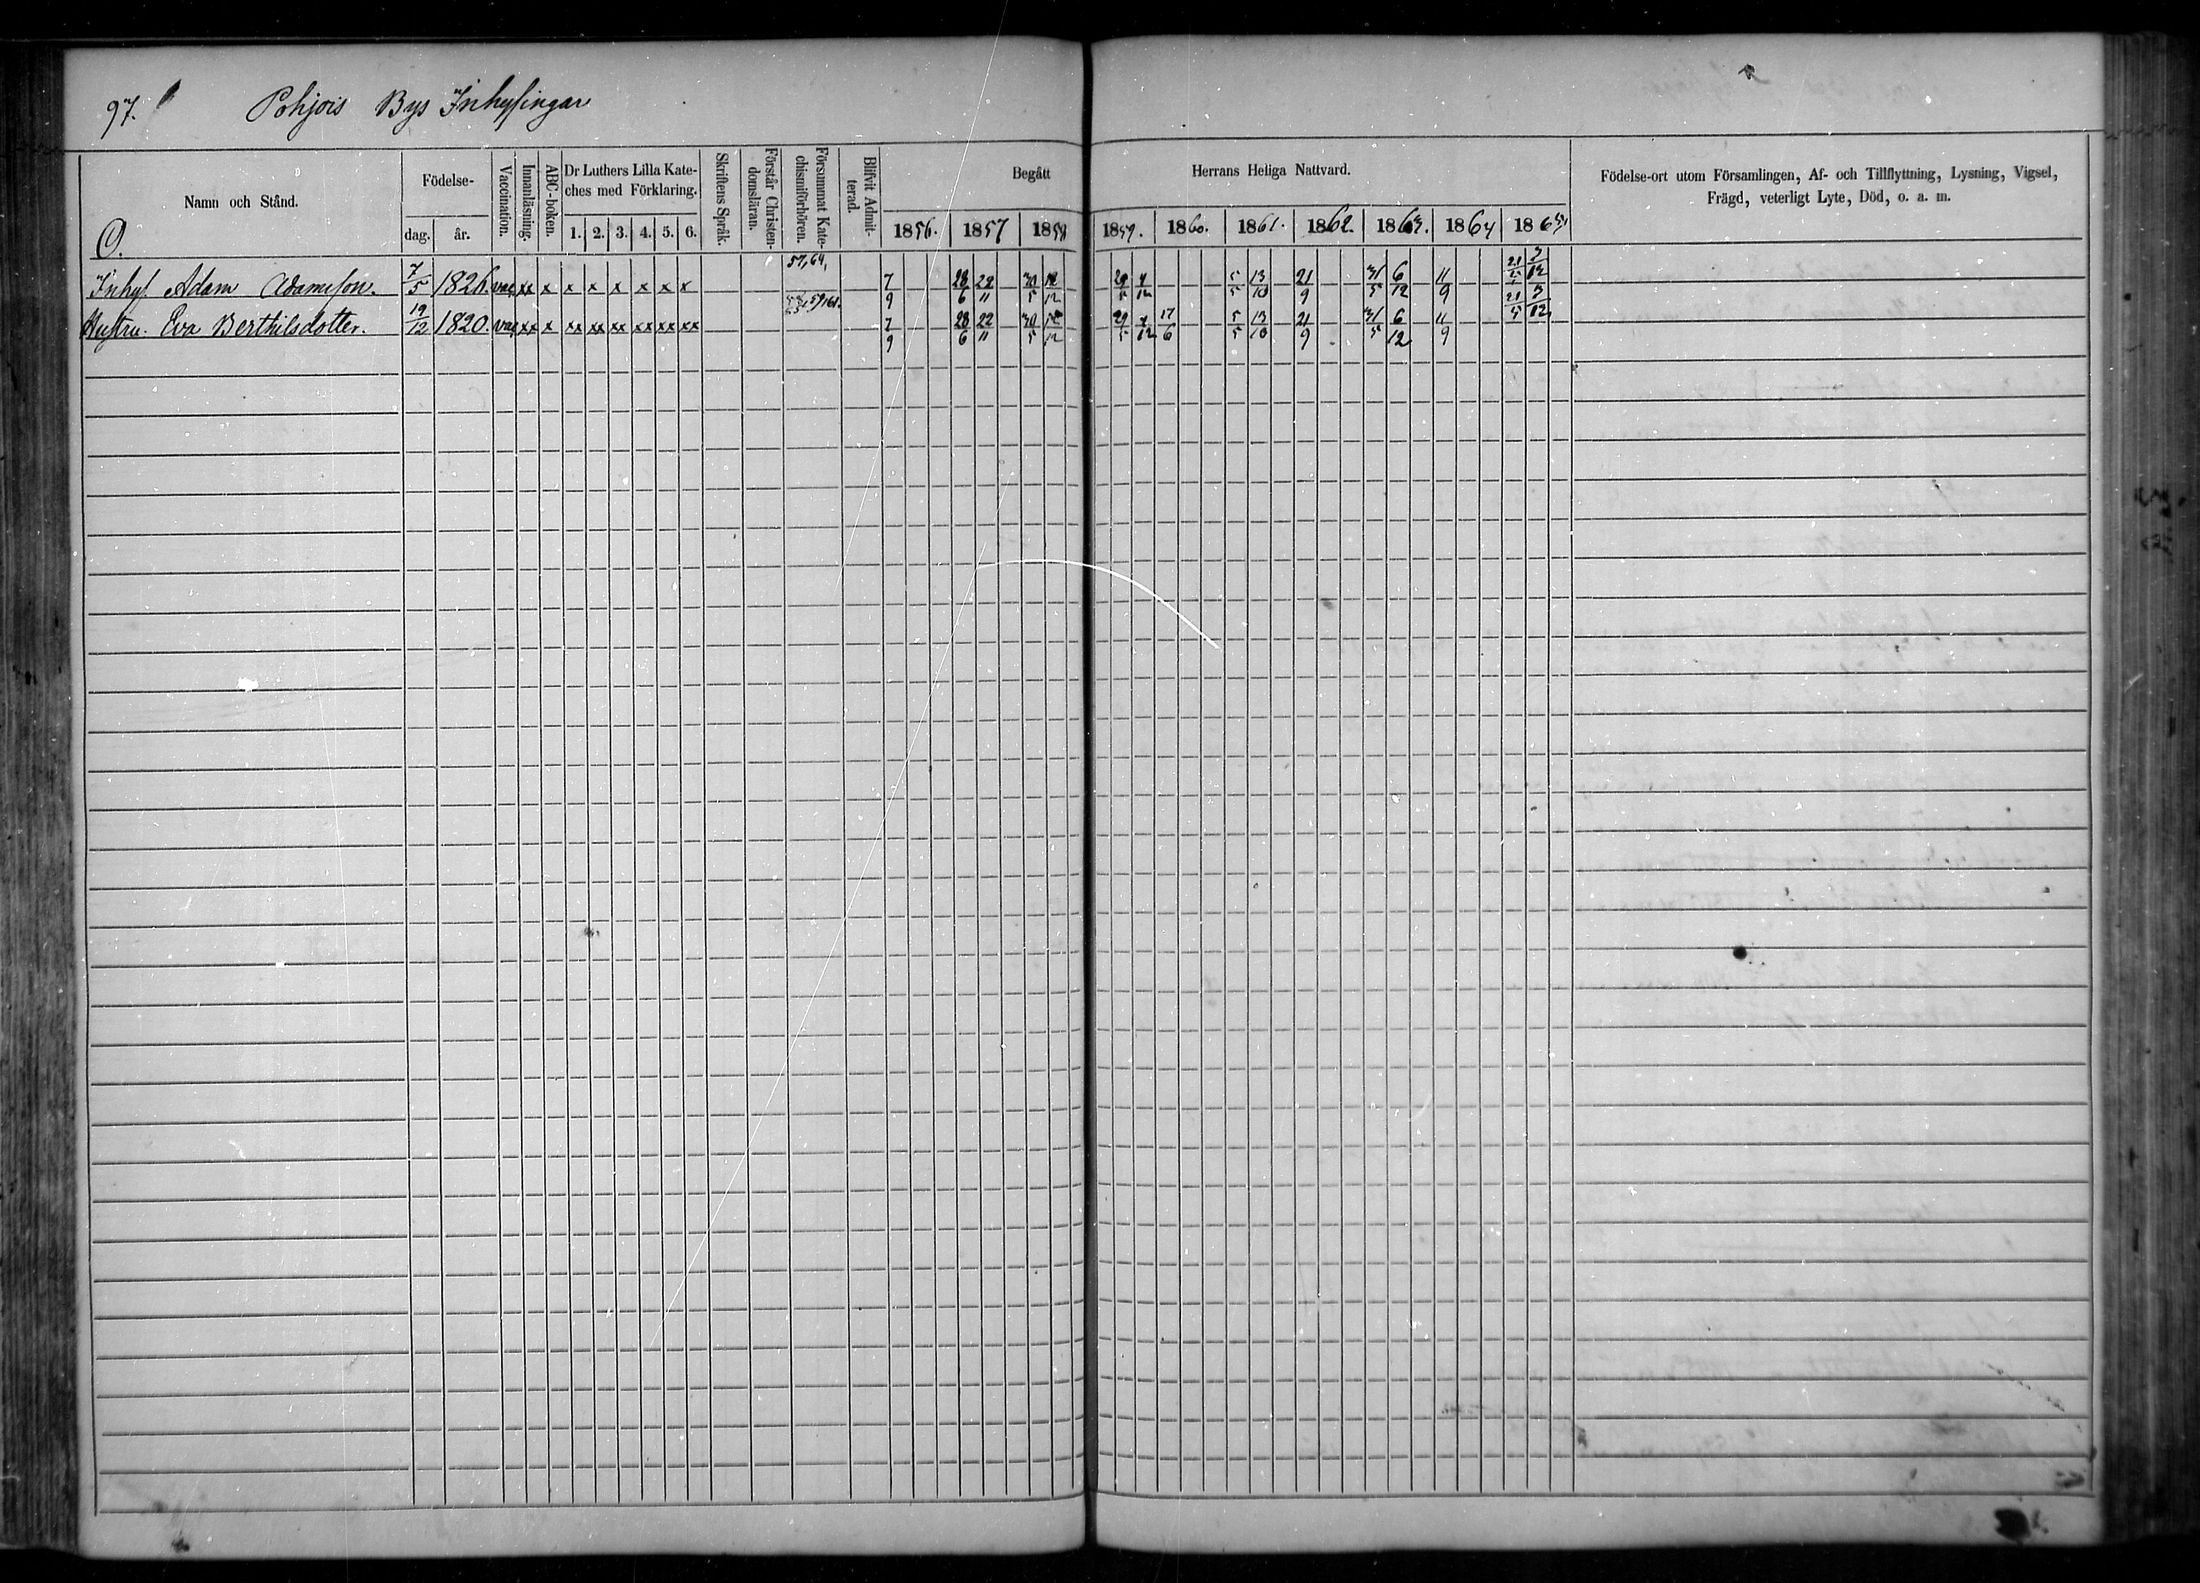 97. Pohjois Bys Inhysingar
Namn och Stånd.
Födelse-
dag. år.
Vaccination.
Innanläsning.
ABC-boken.
Dr Luthers Lilla Kate-
ches med Förklaring.
1. 2. 3. 4. 5. 6.
Skriftens Språk.
Förstår Christen-
domsläran.
Försummat Kate-
chismiförhören.
Blifvit Admit-
terad.
Begått Herrans Heliga Nattvard.
1856. 1857 1858 1859. 1860. 1861. 1862. 1863. 1864 1865
Födelse-ort utom Församlingen, Af- och Tillflyttning, Lysning, Vigsel,
Frägd, veterligt Lyte, Död, o. a. m.
O.
Inhys. Adam Adamsson. 7/5 1826. vac, xx x x x x x x x 57, 64, 7/9 28/6 22/11 30/5 12/12 29/5 4/12 5/5 13/10 21/9 31/5 6/12 11/9 21/5 3/12
Hustru. Eva Berthilsdotter. 19/12 1820. vac, xx x xx xx xx xx xx xx 7/9 28/6 22/11 30/5 12/12 29/5 4/12 17/6 5/5 13/10 21/9 31/5 6/12 11/9 21/5 3/12